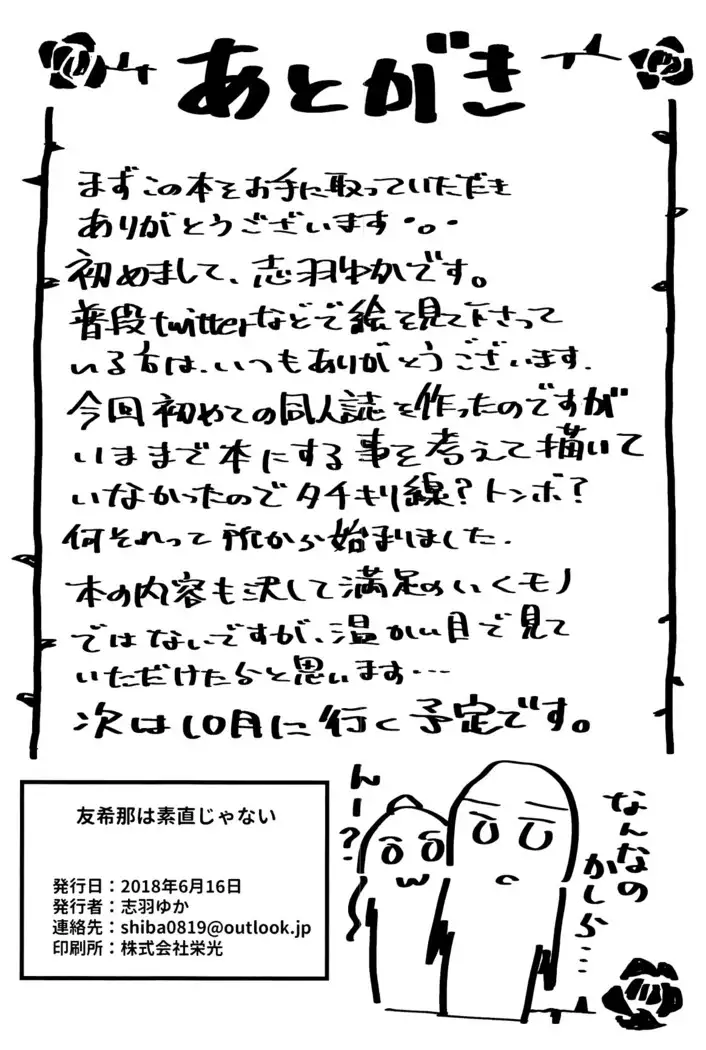 あとがき
まずこの本をお手に取っていただき
ありがとうございます・。・
初めまして、志羽ゆかです。
普段twitterなどで絵を見て下さって
いる方は、いつもありがとうございます.
今回初めての同人誌を作ったのですが
いままで本にする事を考えて描いて
いなかったのでタチキリ線？トンボ？
何それって所から始まりました.
本の内容も決して満足のいくモノ
ではないですが、温かい目で見て
いただけたらと思います…
次は10月に行く予定です。
友希那は素直じゃない
発行日：2018年6月16日
発行者：志羽ゆか
連絡先：shiba0819@outlook.jp
印刷所：株式会社栄光
んー？
なんなの
かしら…